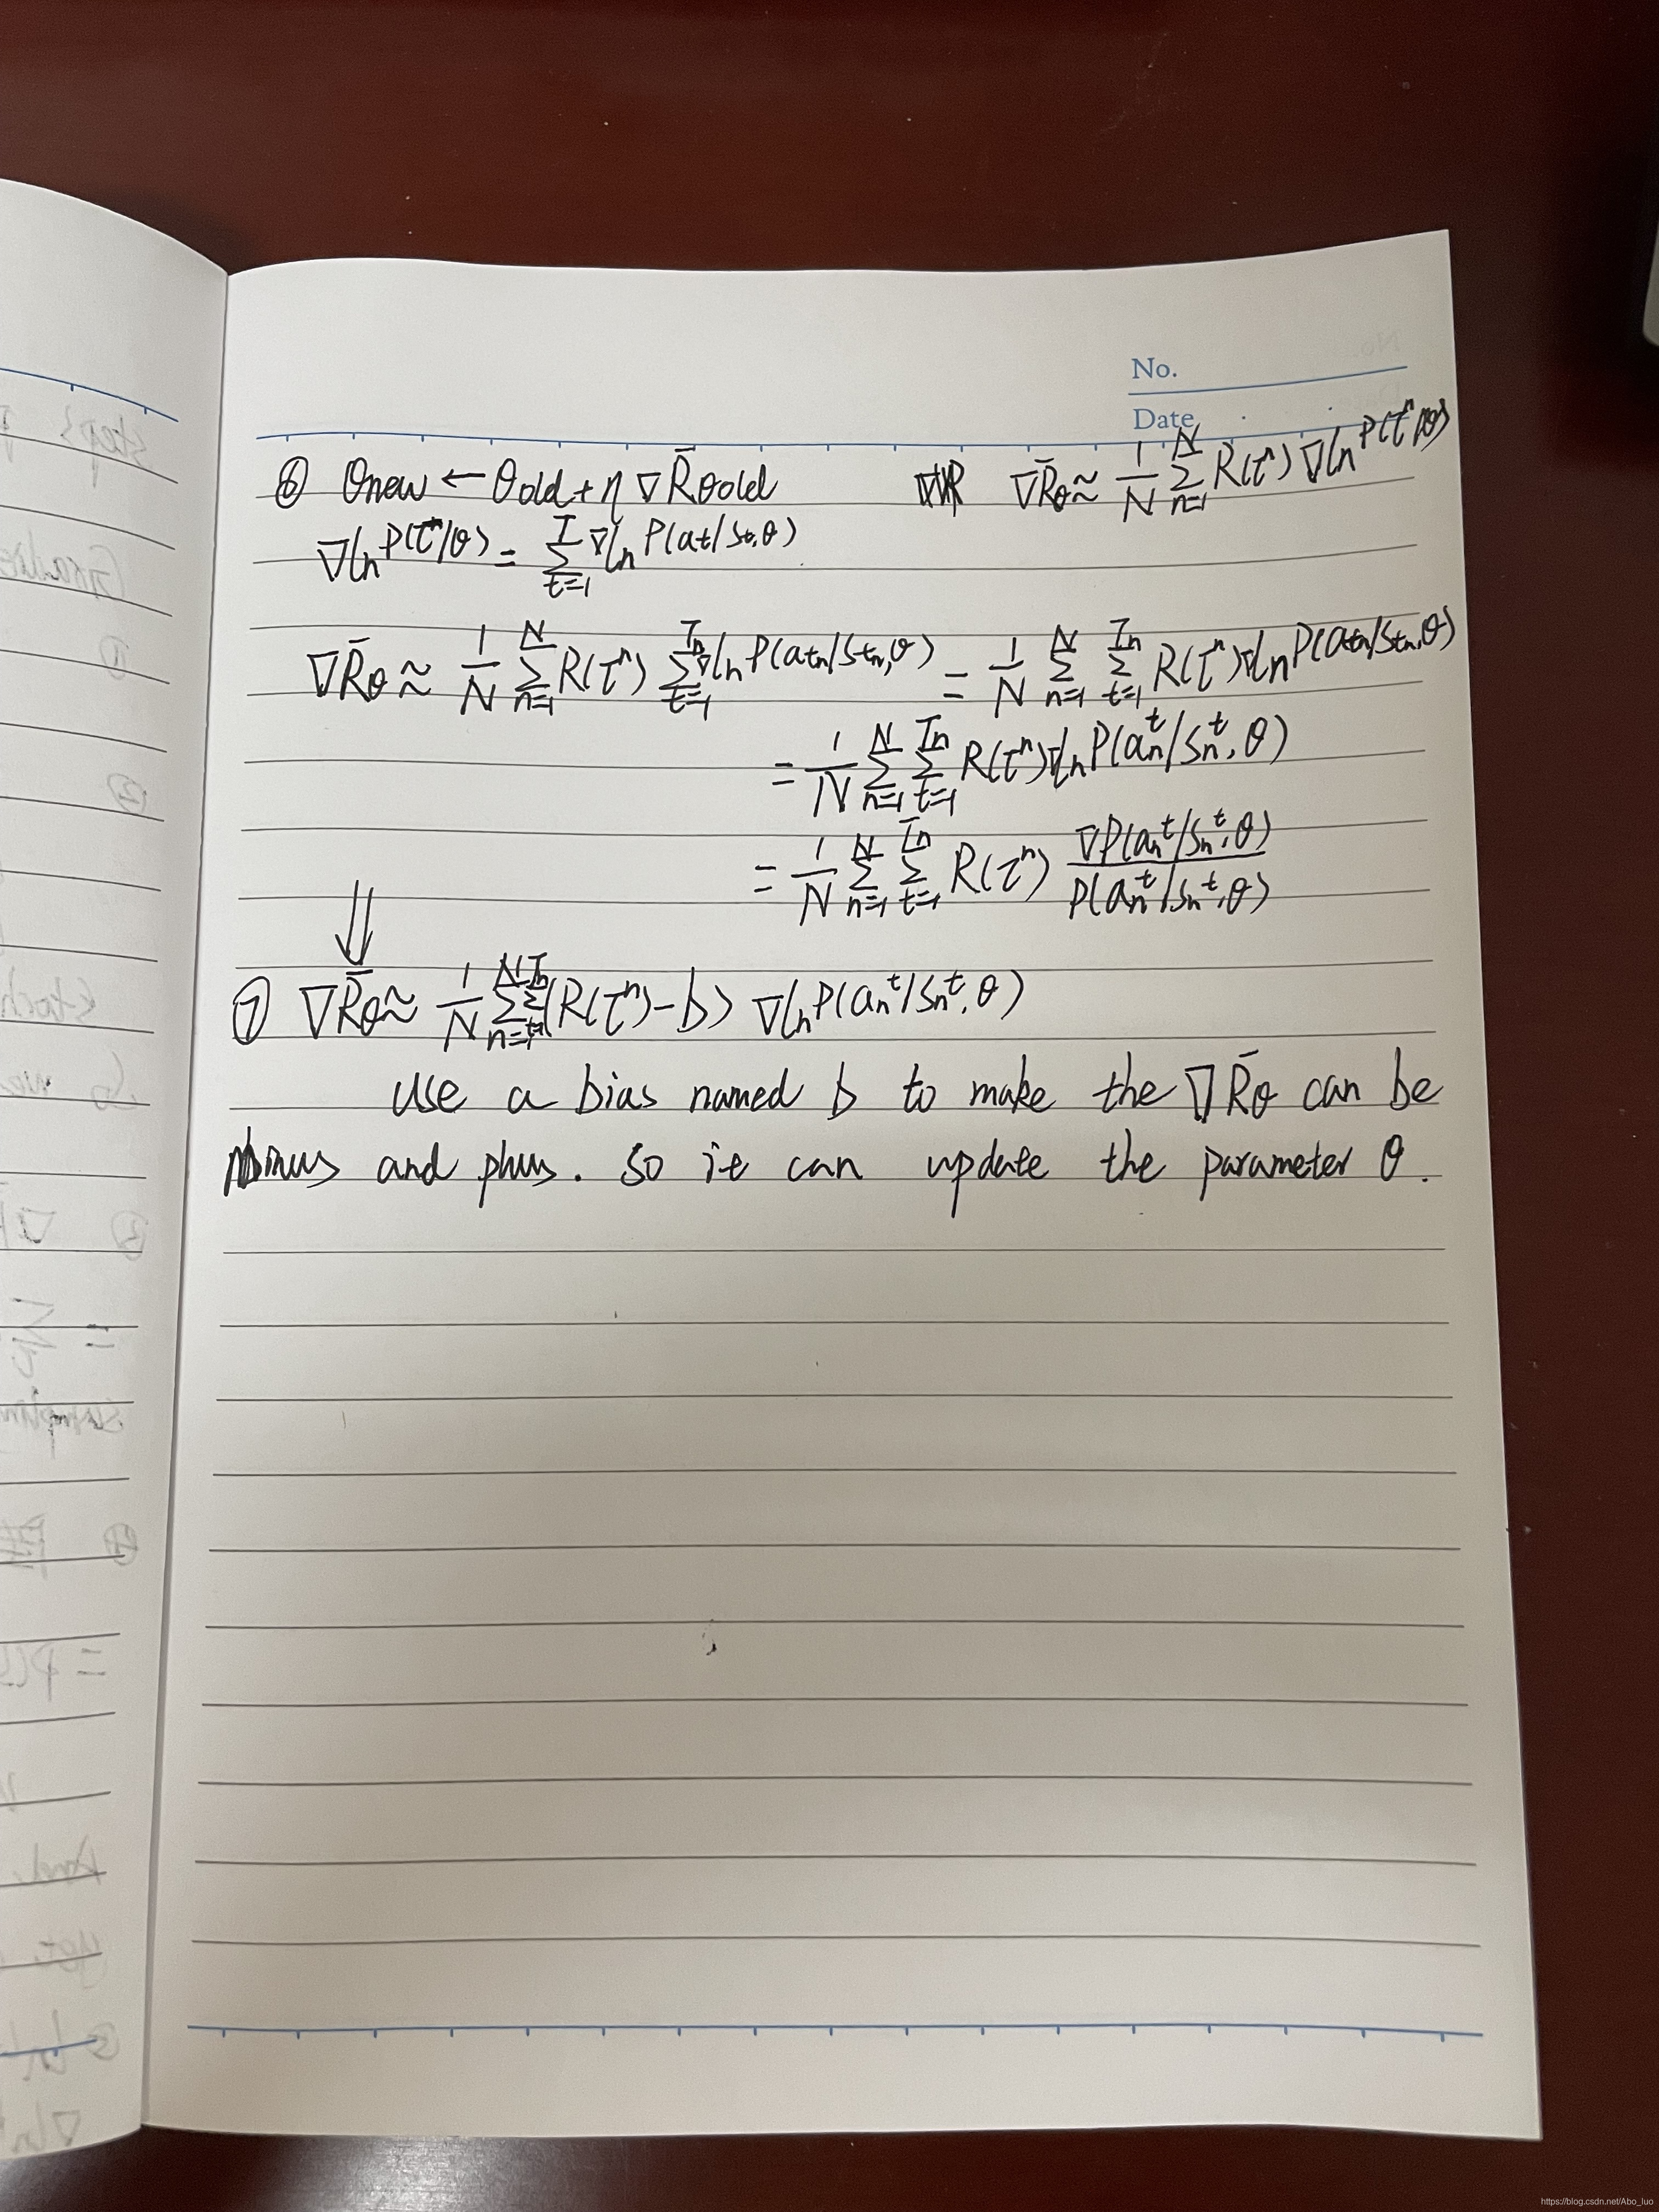 No.
Date
⑥ θnew ← θold + η ∇R̄θold ∇R̄θ ≈ 1/N Σ_{n=1}^{N} R(τ^n) ∇ln P(τ^n|θ)
∇ln P(τ^n/θ) = Σ_{t=1}^{T} ∇ln P(at/st,θ)
∇R̄θ ≈ 1/N Σ_{n=1}^{N} R(τ^n) Σ_{t=1}^{Tn} ∇ln P(atn/stn,θ) = 1/N Σ_{n=1}^{N} Σ_{t=1}^{Tn} R(τ^n) ∇ln P(atn/stn,θ)
= 1/N Σ_{n=1}^{N} Σ_{t=1}^{Tn} R(τ^n) ∇ln P(a_n^t/s_n^t, θ)
= 1/N Σ_{n=1}^{N} Σ_{t=1}^{Tn} R(τ^n) ∇P(a_n^t/s_n^t,θ) / P(a_n^t/s_n^t,θ)
⇓
⑦ ∇R̄θ ≈ 1/N Σ_{n=1}^{N} Σ_{t=1}^{Tn} (R(τ^n)-b) ∇ln P(a_n^t/s_n^t, θ)
Use a bias named b to make the ∇R̄θ can be
minus and plus. So it can update the parameter θ.
https://blog.csdn.net/Abo_luo